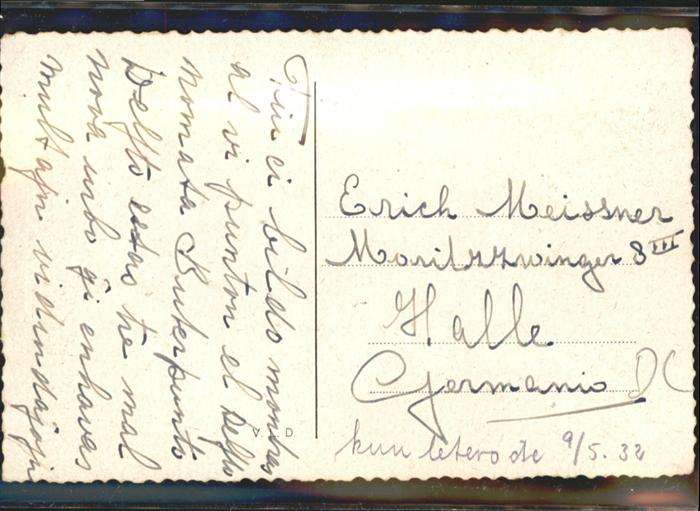 Tiu ĉi bildo montras
al vi punton el Delfto
nomata Buterpunto
Delfto estas tre mal
nova urbo ĝi enhavas
multajn vidindajojn
Erich Meissner
Moritzzwinger 8 III
Halle
Germanio
kun letero de 9/5. 32
V D